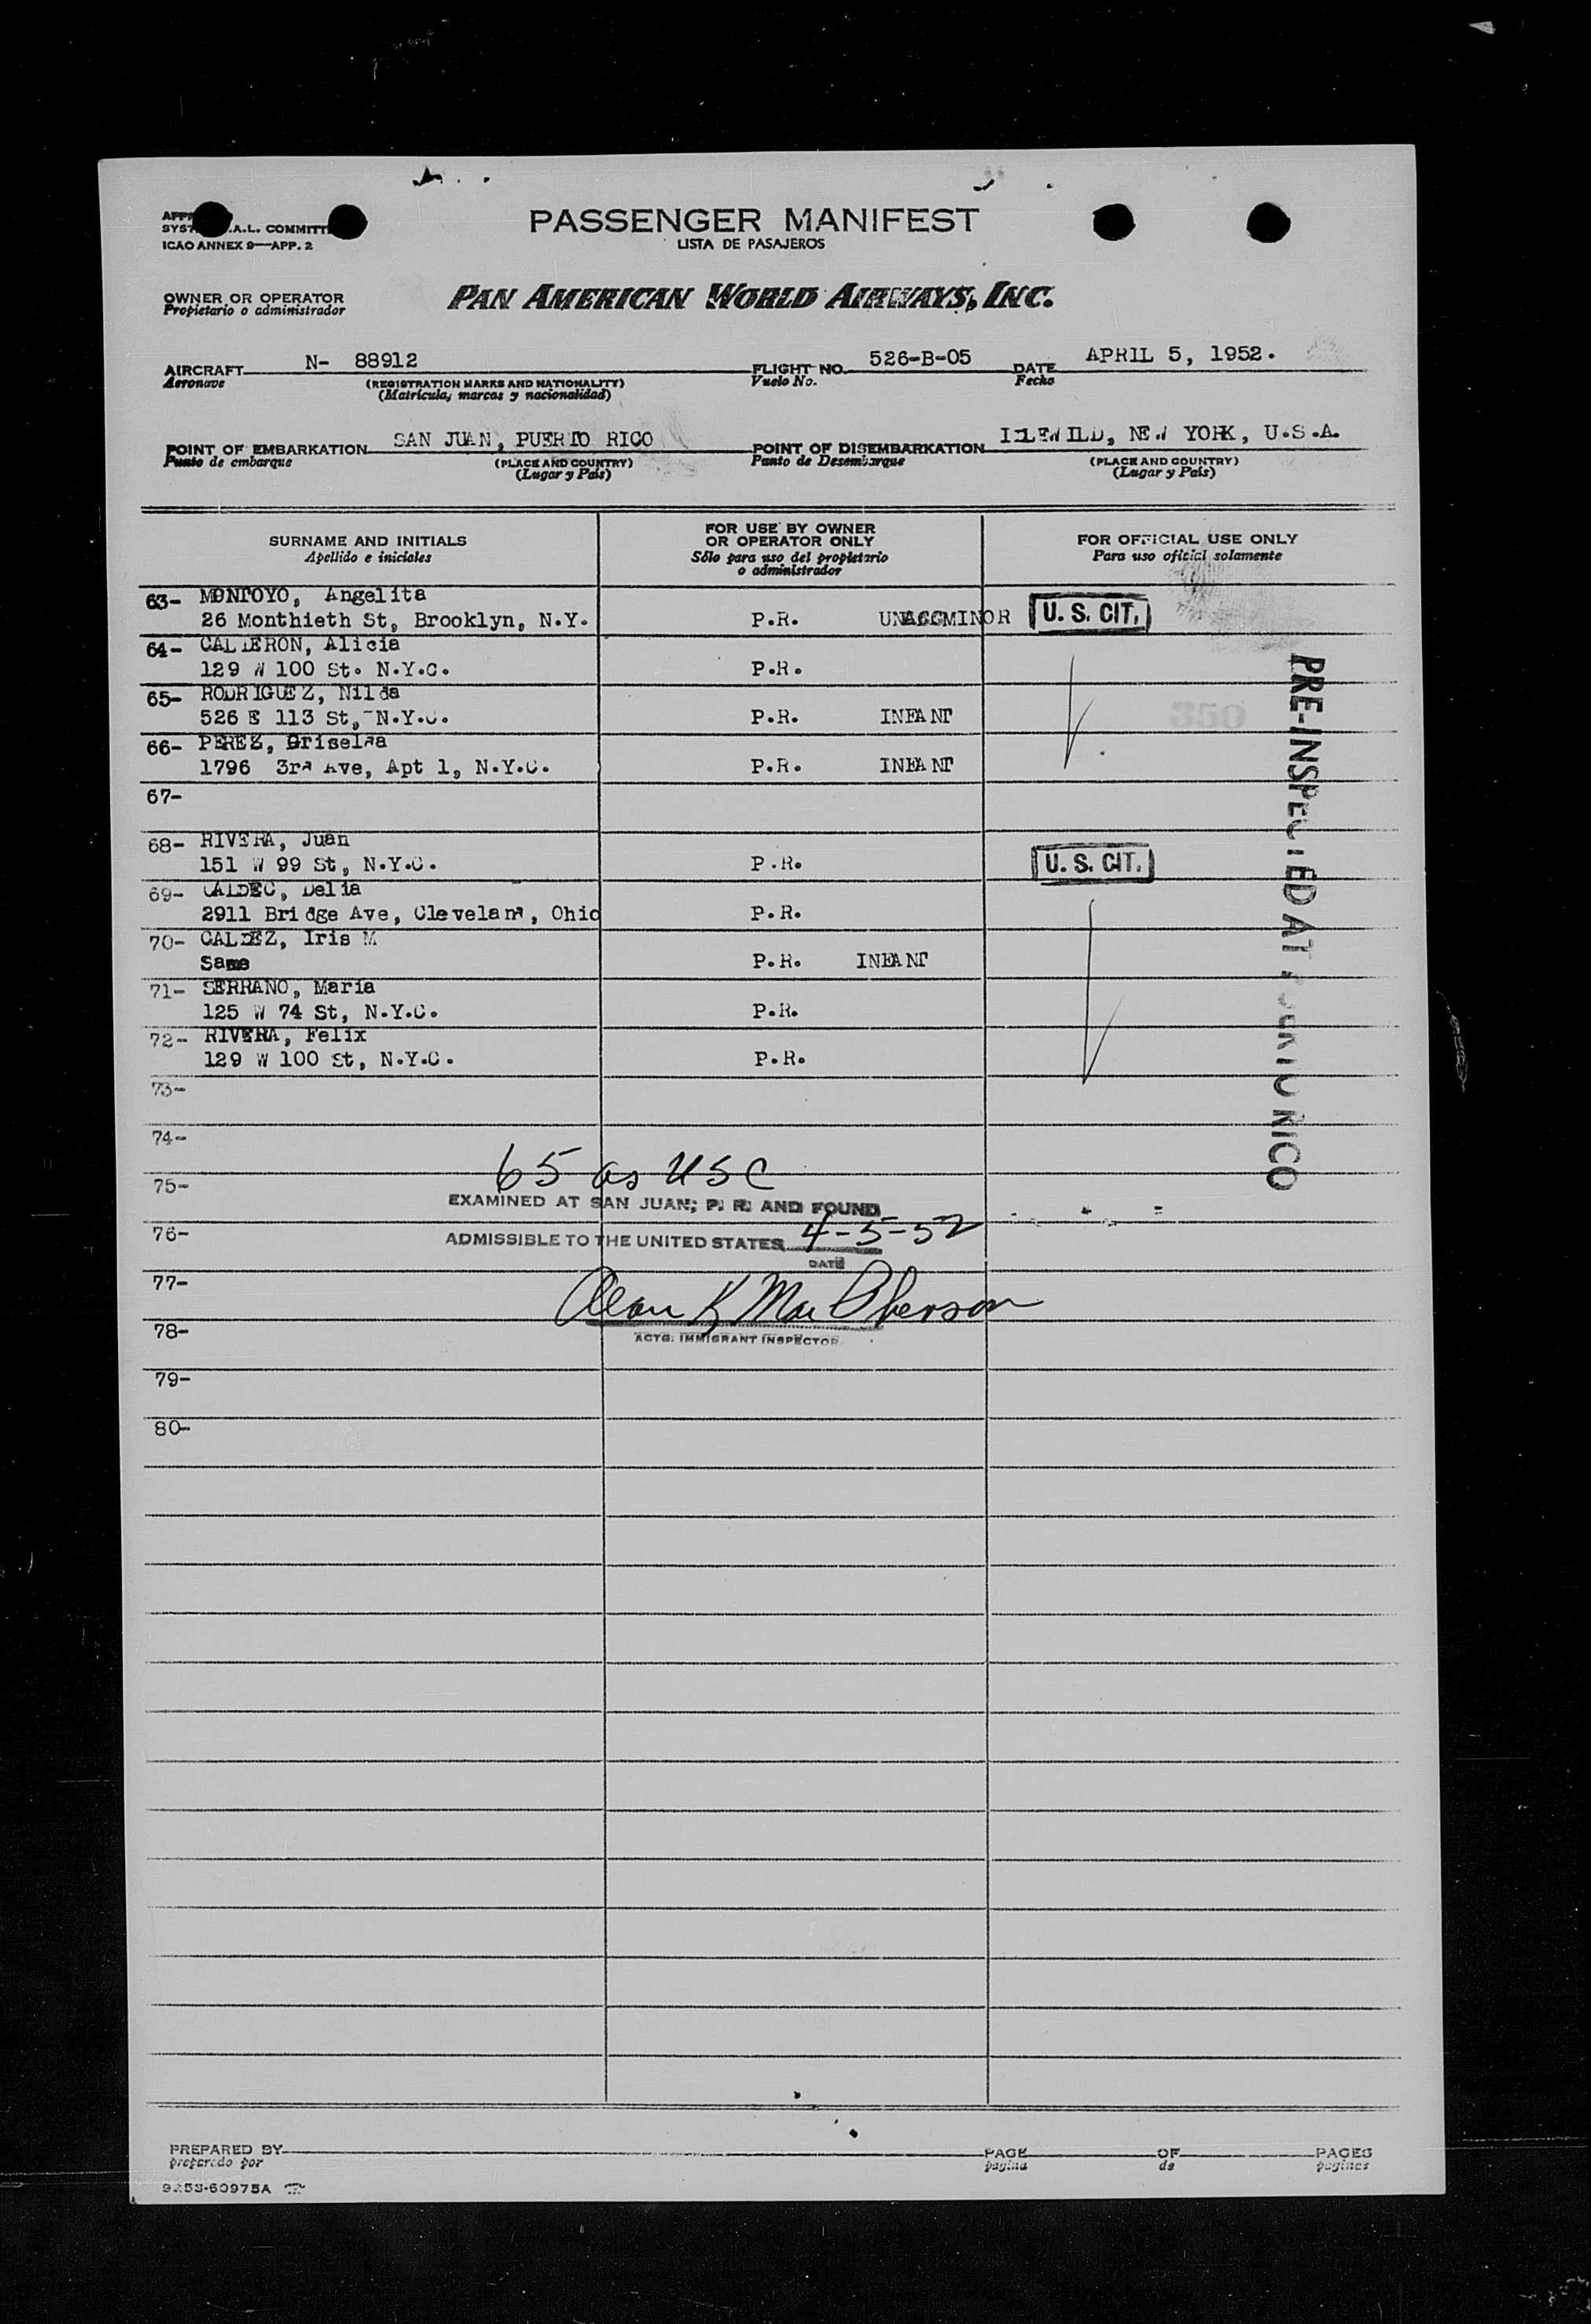 PASSENGER MANIFEST
LISTA DE PASAJEROS
.A.L. COMMITT
ICAO ANNEX 9—APP. 2
OWNER OR OPERATOR
Propietario o administrador
PAN AMERICAN WORLD AIRWAYS, INC.
AIRCRAFT N- 88912 FLIGHT NO. 526-B-05 DATE APRIL 5, 1952.
Aeronave (REGISTRATION MARKS AND NATIONALITY) Vuelo No. Fecha
(Matrícula, marcas y nacionalidad)
POINT OF EMBARKATION SAN JUAN, PUERTO RICO POINT OF DISEMBARKATION IDLEWILD, NEW YORK, U.S.A.
Punto de embarque (PLACE AND COUNTRY) Punto de Desembarque (PLACE AND COUNTRY)
(Lugar y País) (Lugar y País)
SURNAME AND INITIALS
Apellido e iniciales
FOR USE BY OWNER
OR OPERATOR ONLY
Sólo para uso del propietario
o administrador
FOR OFFICIAL USE ONLY
Para uso oficial solamente
63- MONTOYO, Angelita
26 Monthieth St, Brooklyn, N.Y. P.R. UNACCMINOR U. S. CIT.
64- CALDERON, Alicia
129 W 100 St. N.Y.C. P.R.
65- RODRIGUEZ, Nilda
526 E 113 St, N.Y.C. P.R. INFANT 350
66- PEREZ, Griselda
1796 3rd Ave, Apt 1, N.Y.C. P.R. INFANT
67-
68- RIVERA, Juan
151 W 99 St, N.Y.C. P.R. U. S. CIT.
69- CALDEC, Delia
2911 Bridge Ave, Cleveland, Ohio P.R.
70- CALDEZ, Iris M
Same P.R. INFANT
71- SERRANO, Maria
125 W 74 St, N.Y.C. P.R.
72- RIVERA, Felix
129 W 100 St, N.Y.C. P.R.
PRE-INSPECTED AT PUERTO RICO
73-
74-
65 as USC
75-
EXAMINED AT SAN JUAN, P. R. AND FOUND
76-
ADMISSIBLE TO THE UNITED STATES 4-5-52
DATE
77-
Alan K MacPherson
78-
ACTG. IMMIGRANT INSPECTOR
79-
80-
PREPARED BY PAGE OF PAGES
preparado por pagina de paginas